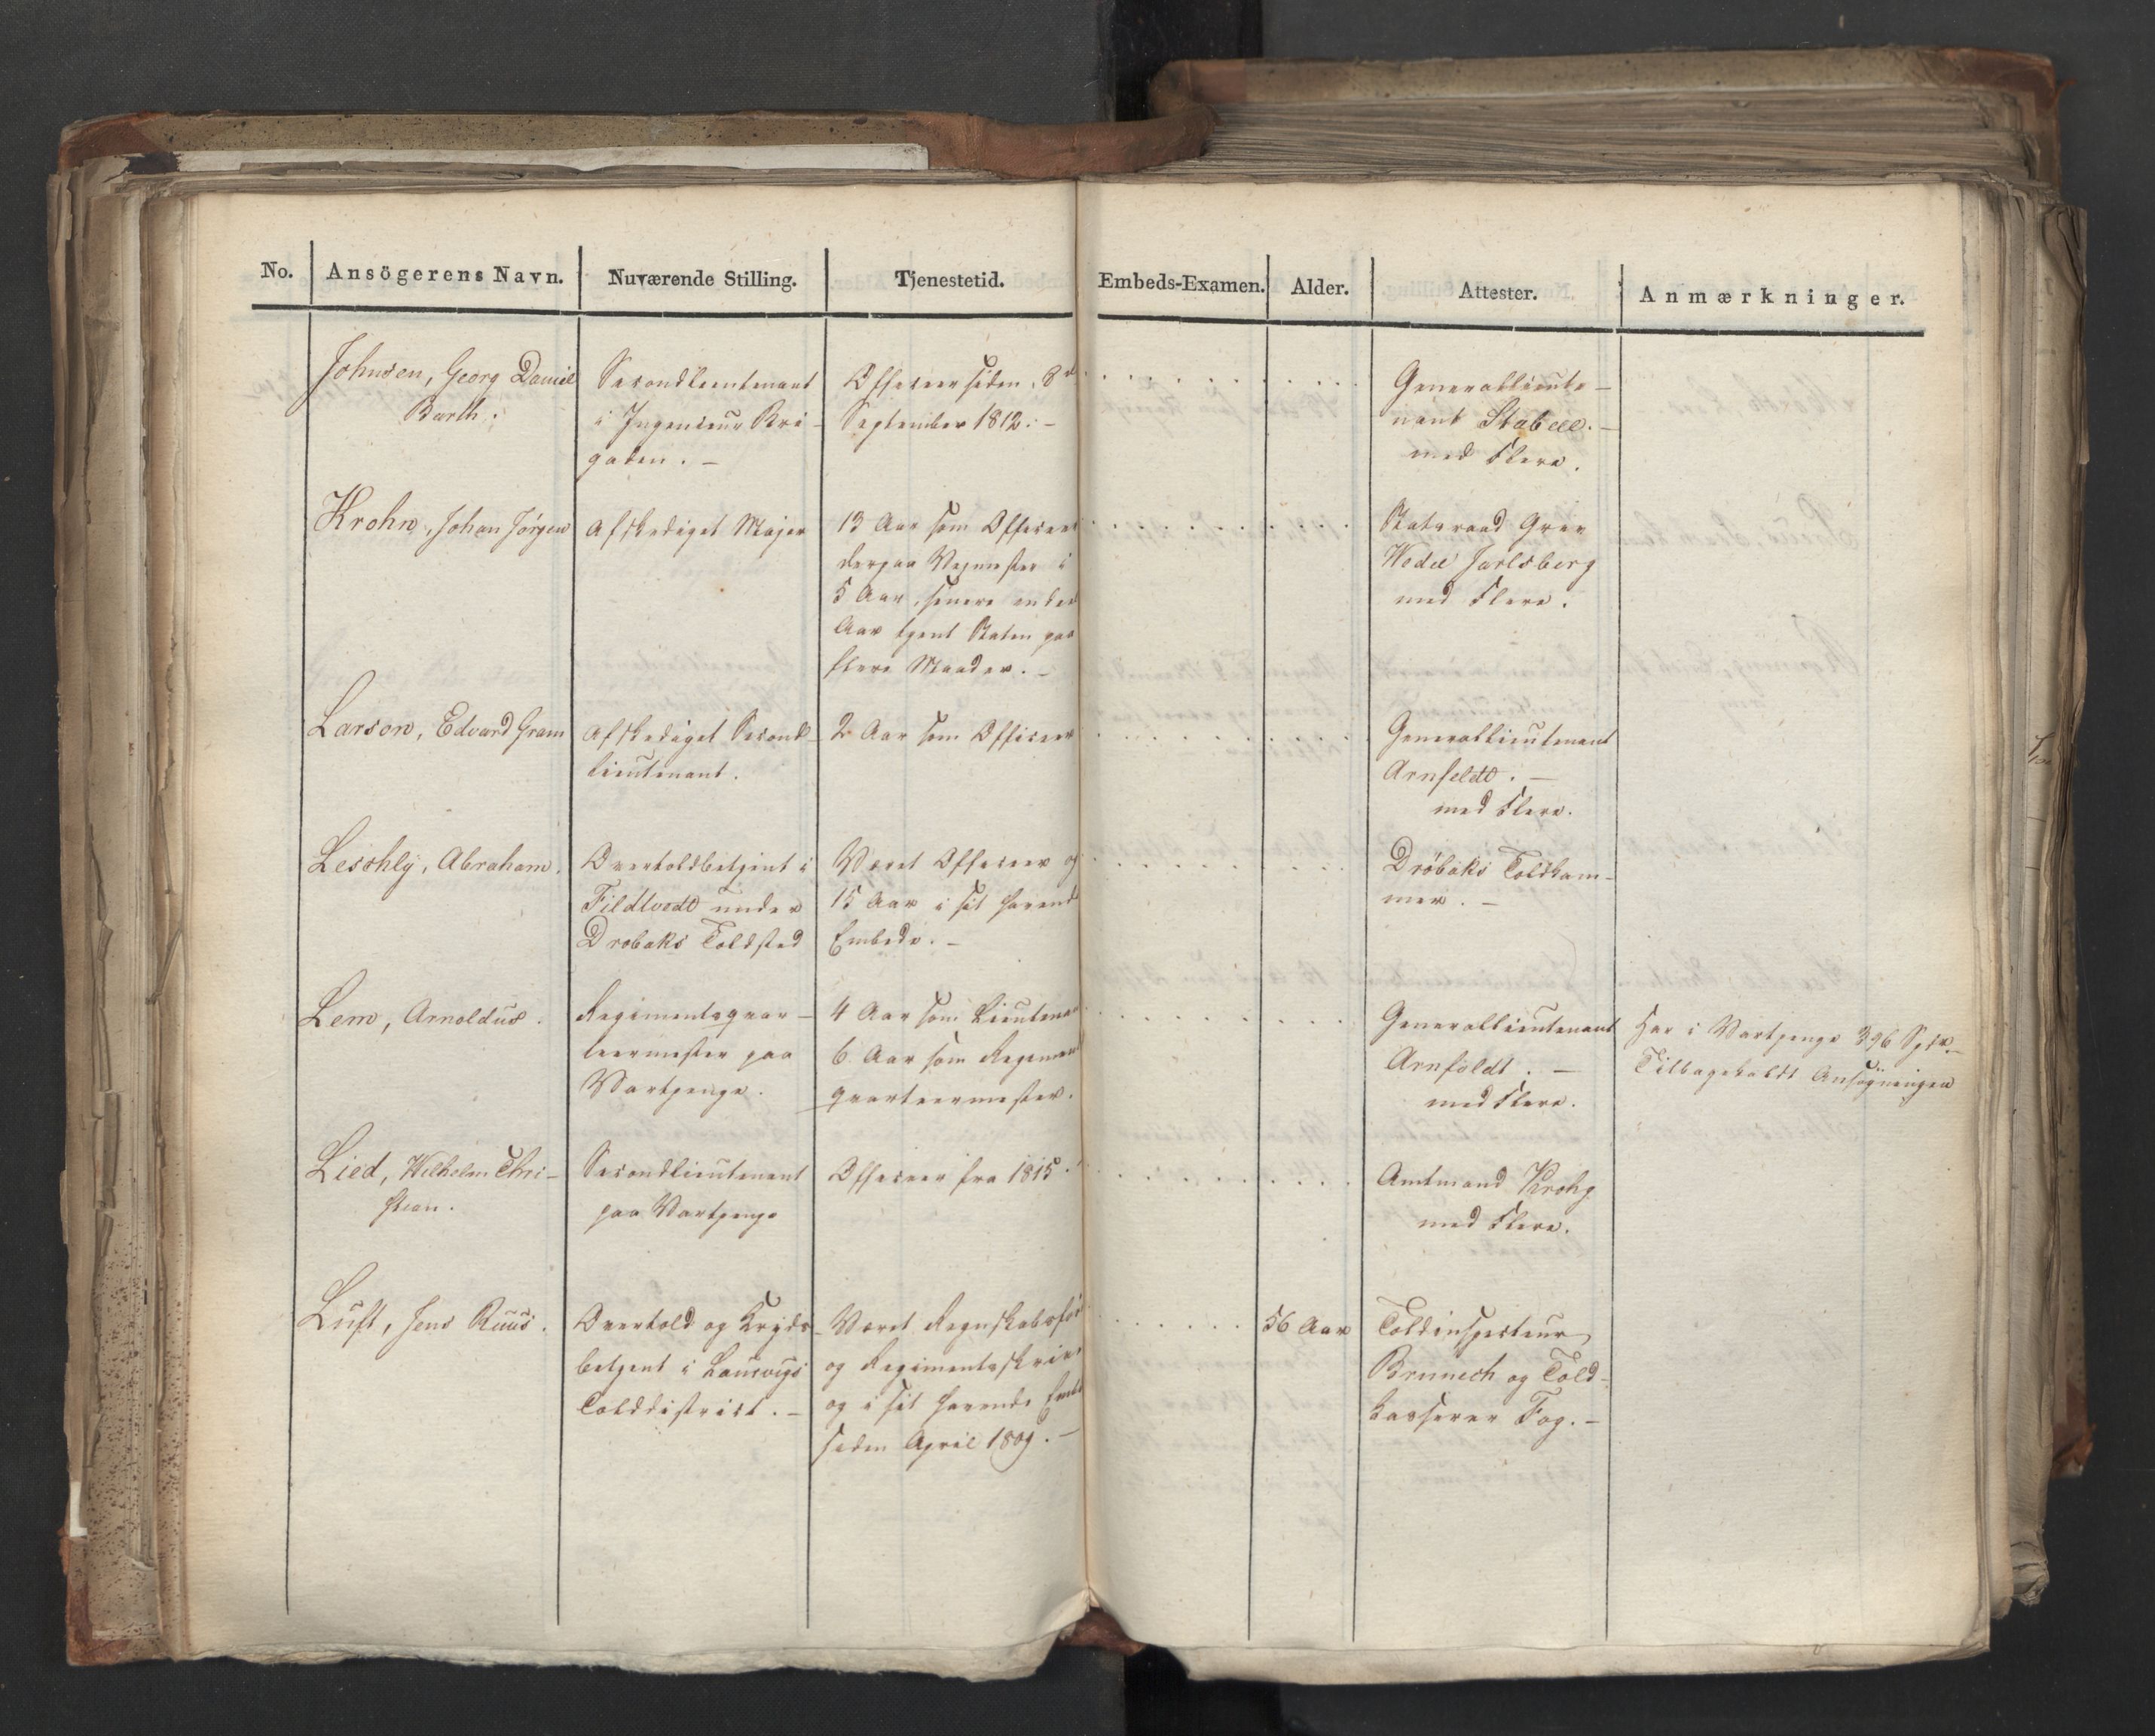 No. Ansögerens Navn. Nuværende Stilling. Tjenestetid. Embeds-Examen. Alder. Attester. Anmærkninger.
Johnsen, Georg Daniel
Barth.
Secondlieutenant
i Ingenieur Bri-
gaden. -
Officeer siden 8de
September 1812. -
Generallieute-
nant Stabell. -
med Flere.
Krohn, Johan Jörgen
Afskediget Major
13 Aar som Officeer
derpaa Vejmester i
5 Aar, senere endeel
Aar tjent Staten paa
flere Maader. -
Statsraad Grev
Wedel Jarlsberg
med Flere.
Larson, Edvard Gram
Afskediget Second-
lieutenant.
2 Aar som Officeer
Generallieutenant
Arnfeldt. -
med Flere.
Leschly, Abraham.
Overtoldbetjent i
Fildtvedt under
Drobaks Toldsted
Været Officeer og
15 Aar i sit havende
Embede. -
Dröbaks Toldkam-
mer. -
Lem, Arnoldus.
Regimentsqvar-
teermester paa
Vartpenge.
4 Aar som Lieutenant
6 Aar som Regiments
qvarteermester.
Generallieutenant
Arnfeldt. -
med Flere.
Har i Vartpenge 396 Spdr.
Tilbagekaldt Ansögningen
Lied, Wilhelm Chri-
stian.
Secondlieutenant
paa Vartpenge
Officeer fra 1815.
Amtmand Krohg
med Flere.
Luft, Jens Ruus.
Overtold og Kryds-
betjent i Laurvigs
Tolddistrict. -
Været Regnskabsför
og Regimentsskriver
og i sit havende Embe
siden April 1809. -
56 Aar
Toldinspecteur
Brunech og Told-
kasserer Fog. -